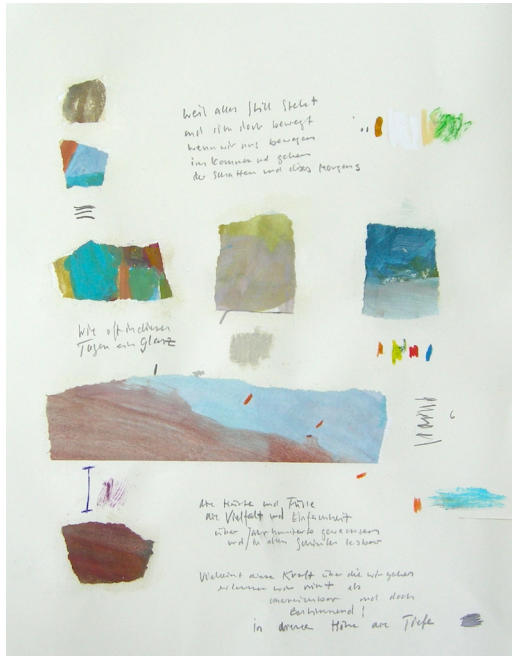 weil alles still steht
und sich doch bewegt
wenn wir uns bewegen
im kommen und gehen
der Schatten und dieses Morgens
wie oft in diesen
Tagen ein glanz
6
die Härte und Fülle
die Vielfalt und Einfachheit
über Jahrhunderte gewachsen
und in den lesbar
Vielleicht diese Kraft über die wir gehen
als
und doch
bestimmend!
in dieser Höhe die Tiefe